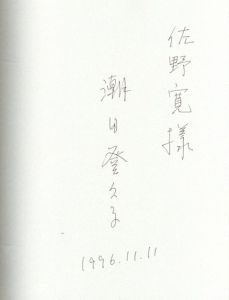 佐野寛様
潮田登久子
1996.11.11